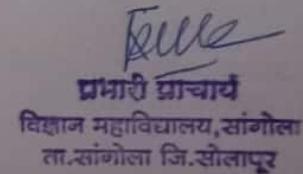 प्रभारी प्राचार्य
विज्ञान महाविद्यालय, सांगोला
ता.सांगोला जि.सोलापूर